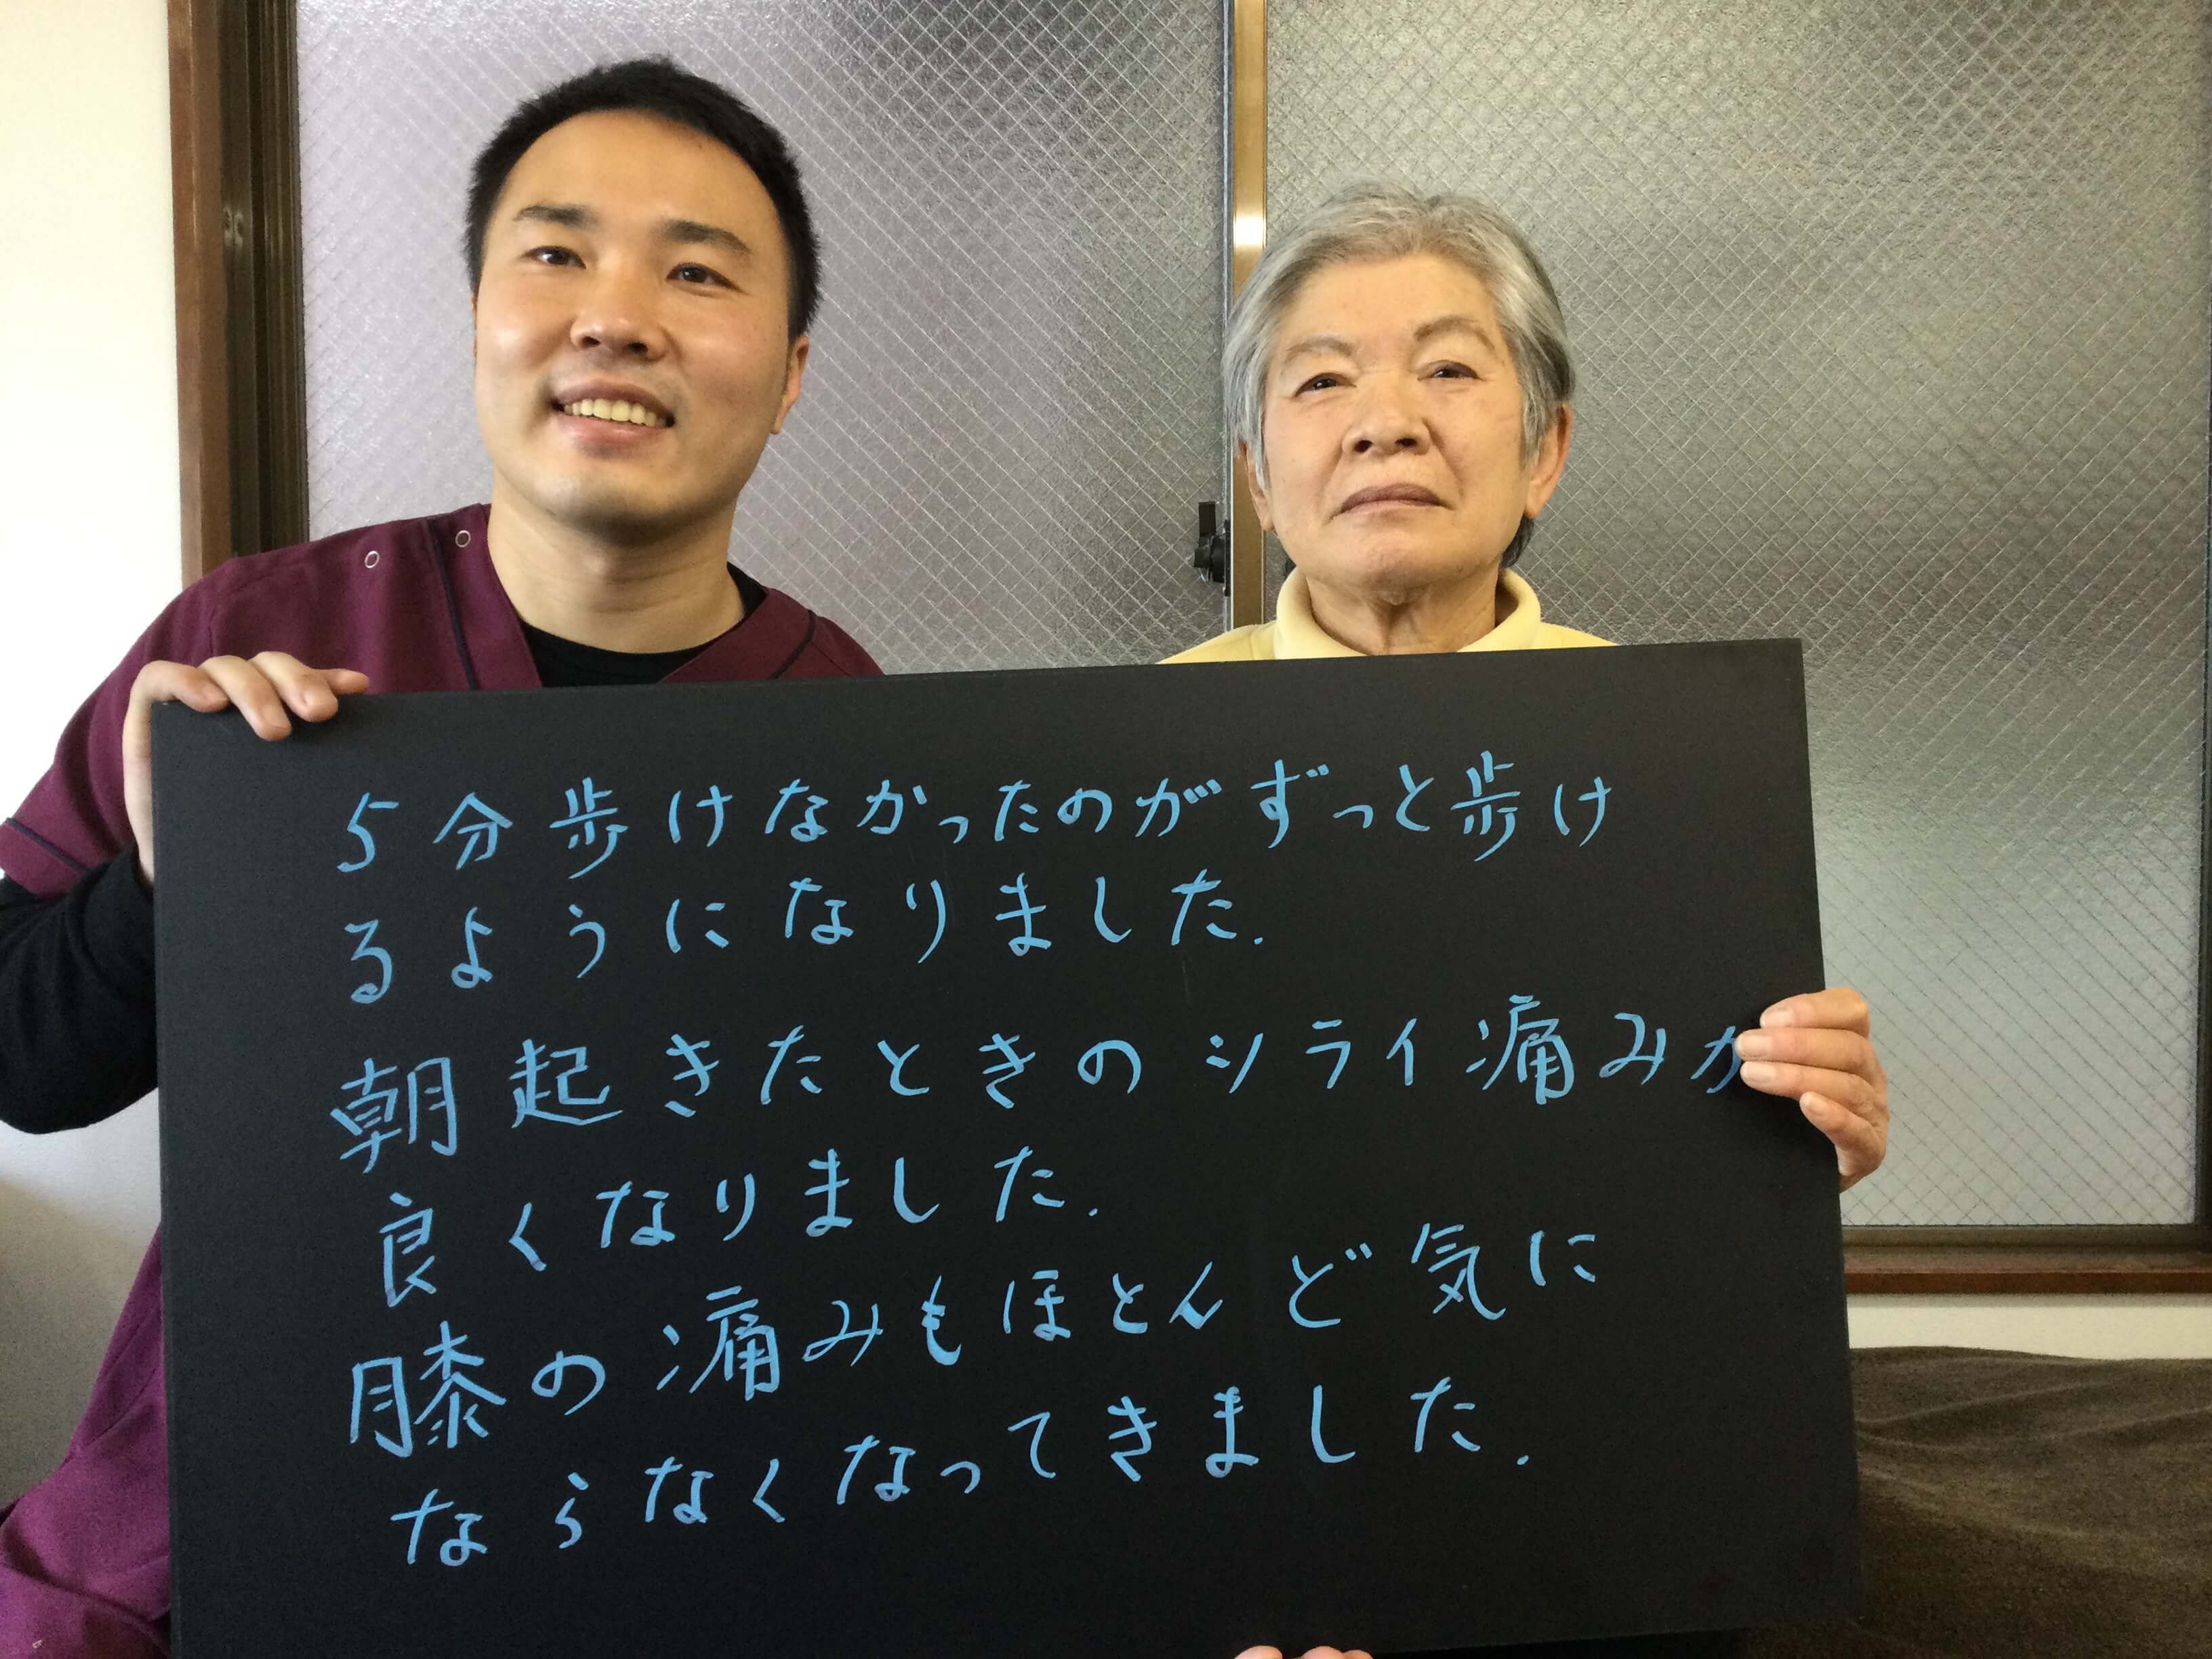 5分歩けなかったのがずっと歩け
るようになりました.
朝起きたときのシライ痛みが
良くなりました.
膝の痛みもほとんど気に
ならなくなってきました.